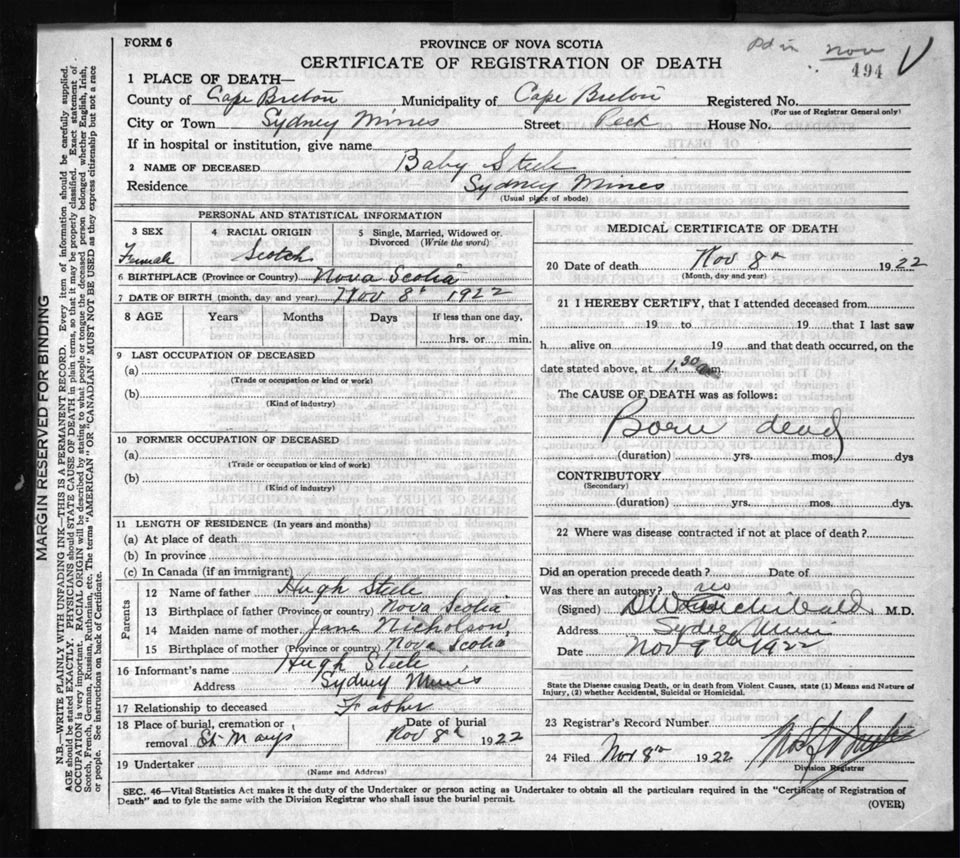 FORM 6
PROVINCE OF NOVA SCOTIA
CERTIFICATE OF REGISTRATION OF DEATH
now
494 V
1 PLACE OF DEATH—
County of Cape Breton Municipality of Cape Breton Registered No.
(For use of Registrar General only)
City or Town Sydney Mines Street Peck House No.
If in hospital or institution, give name
2 NAME OF DECEASED Baby Steele
Residence Sydney Mines
(Usual place of abode)
PERSONAL AND STATISTICAL INFORMATION
3 SEX 4 RACIAL ORIGIN 5 Single, Married, Widowed or Divorced (Write the word)
Female Scotch
6 BIRTHPLACE (Province or Country) Nova Scotia
7 DATE OF BIRTH (month, day and year) Nov 8th 1922
8 AGE Years Months Days If less than one day,
hrs. or min.
9 LAST OCCUPATION OF DECEASED
(a)
(Trade or occupation or kind or work)
(b)
(Kind of industry)
10 FORMER OCCUPATION OF DECEASED
(a)
(Trade or occupation or kind of work)
(b)
(Kind of industry)
11 LENGTH OF RESIDENCE (In years and months)
(a) At place of death
(b) In province
(c) In Canada (if an immigrant)
Parents
12 Name of father Hugh Steele
13 Birthplace of father (Province or country) Nova Scotia
14 Maiden name of mother Jane Nicholson
15 Birthplace of mother (Province or country) Nova Scotia
16 Informant's name Hugh Steele
Address Sydney Mines
17 Relationship to deceased Father
18 Place of burial, cremation or removal St Marys Date of burial Nov 8th 1922
19 Undertaker
(Name and Address)
MEDICAL CERTIFICATE OF DEATH
20 Date of death Nov 8th 1922
(Month, day and year)
21 I HEREBY CERTIFY, that I attended deceased from
19 to 19 that I last saw
h alive on 19 and that death occurred, on the
date stated above, at 1.30 m.
The CAUSE OF DEATH was as follows:
Born dead
(duration) yrs. mos. dys
CONTRIBUTORY
(Secondary)
(duration) yrs. mos. dys.
22 Where was disease contracted if not at place of death?
Did an operation precede death? Date of
Was there an autopsy? no
(Signed) Archibald M.D.
Address Sydney Mines
Date Nov 9th 1922
State the Disease causing Death, or in death from Violent Causes, state (1) Means and Nature of
Injury, (2) whether Accidental, Suicidal or Homicidal.
23 Registrar's Record Number
24 Filed Nov 8th 1922
Division Registrar
SEC. 46—Vital Statistics Act makes it the duty of the Undertaker or person acting as Undertaker to obtain all the particulars required in the "Certificate of Registration of
Death" and to fyle the same with the Division Registrar who shall issue the burial permit.
(OVER)
MARGIN RESERVED FOR BINDING
N.B.—WRITE PLAINLY WITH UNFADING INK—THIS IS A PERMANENT RECORD. Every item of information should be carefully supplied.
AGE should be stated EXACTLY. PHYSICIANS should STATE CAUSE OF DEATH in plain terms, so that it may be properly classified. Exact statement of
OCCUPATION is very important. RACIAL ORIGIN will be described by stating to what people or tongue the deceased person belonged, whether English, Irish,
Scotch, French, German, Russian, Ruthenian, etc. The terms "AMERICAN" OR "CANADIAN" MUST NOT BE USED as they express citizenship but not a race
or people. See instructions on back of Certificate.